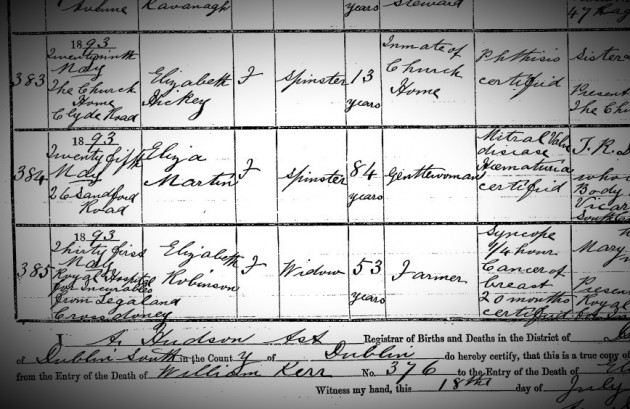 Avenue Kavanagh years Steward 47
1893
383 Twenty ninth May Elizabeth F Spinster 13 Inmate of Phthisis Sister
The Church Hickey years Church certified Present
Home Home The Ch
Clyde Road
1893
384 Twenty fifth Eliza F Spinster 84 Gentlewoman Mitral Valve
May Martin years disease
26 Sandford Haematuria
Road certified Body
1893
385 Thirty first Elizabeth F Widow 53 Farmer Syncope
May Robinson years 1/4 hour Mary
Royal Hospital Cancer of
for Incurables breast
from Legaland 20 months Royal
Crossdoney certified for In
I A. Hudson Asst Registrar of Births and Deaths in the District of
of Dublin South in the County of Dublin do hereby certify, that this is a true copy of
from the Entry of the Death of William Kerr No. 376 to the Entry of the Death of
Witness my hand, this 18th day of July